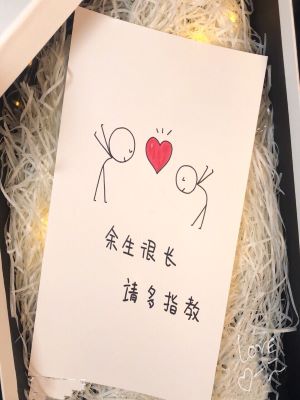 余生很长
请多指教
LOVE